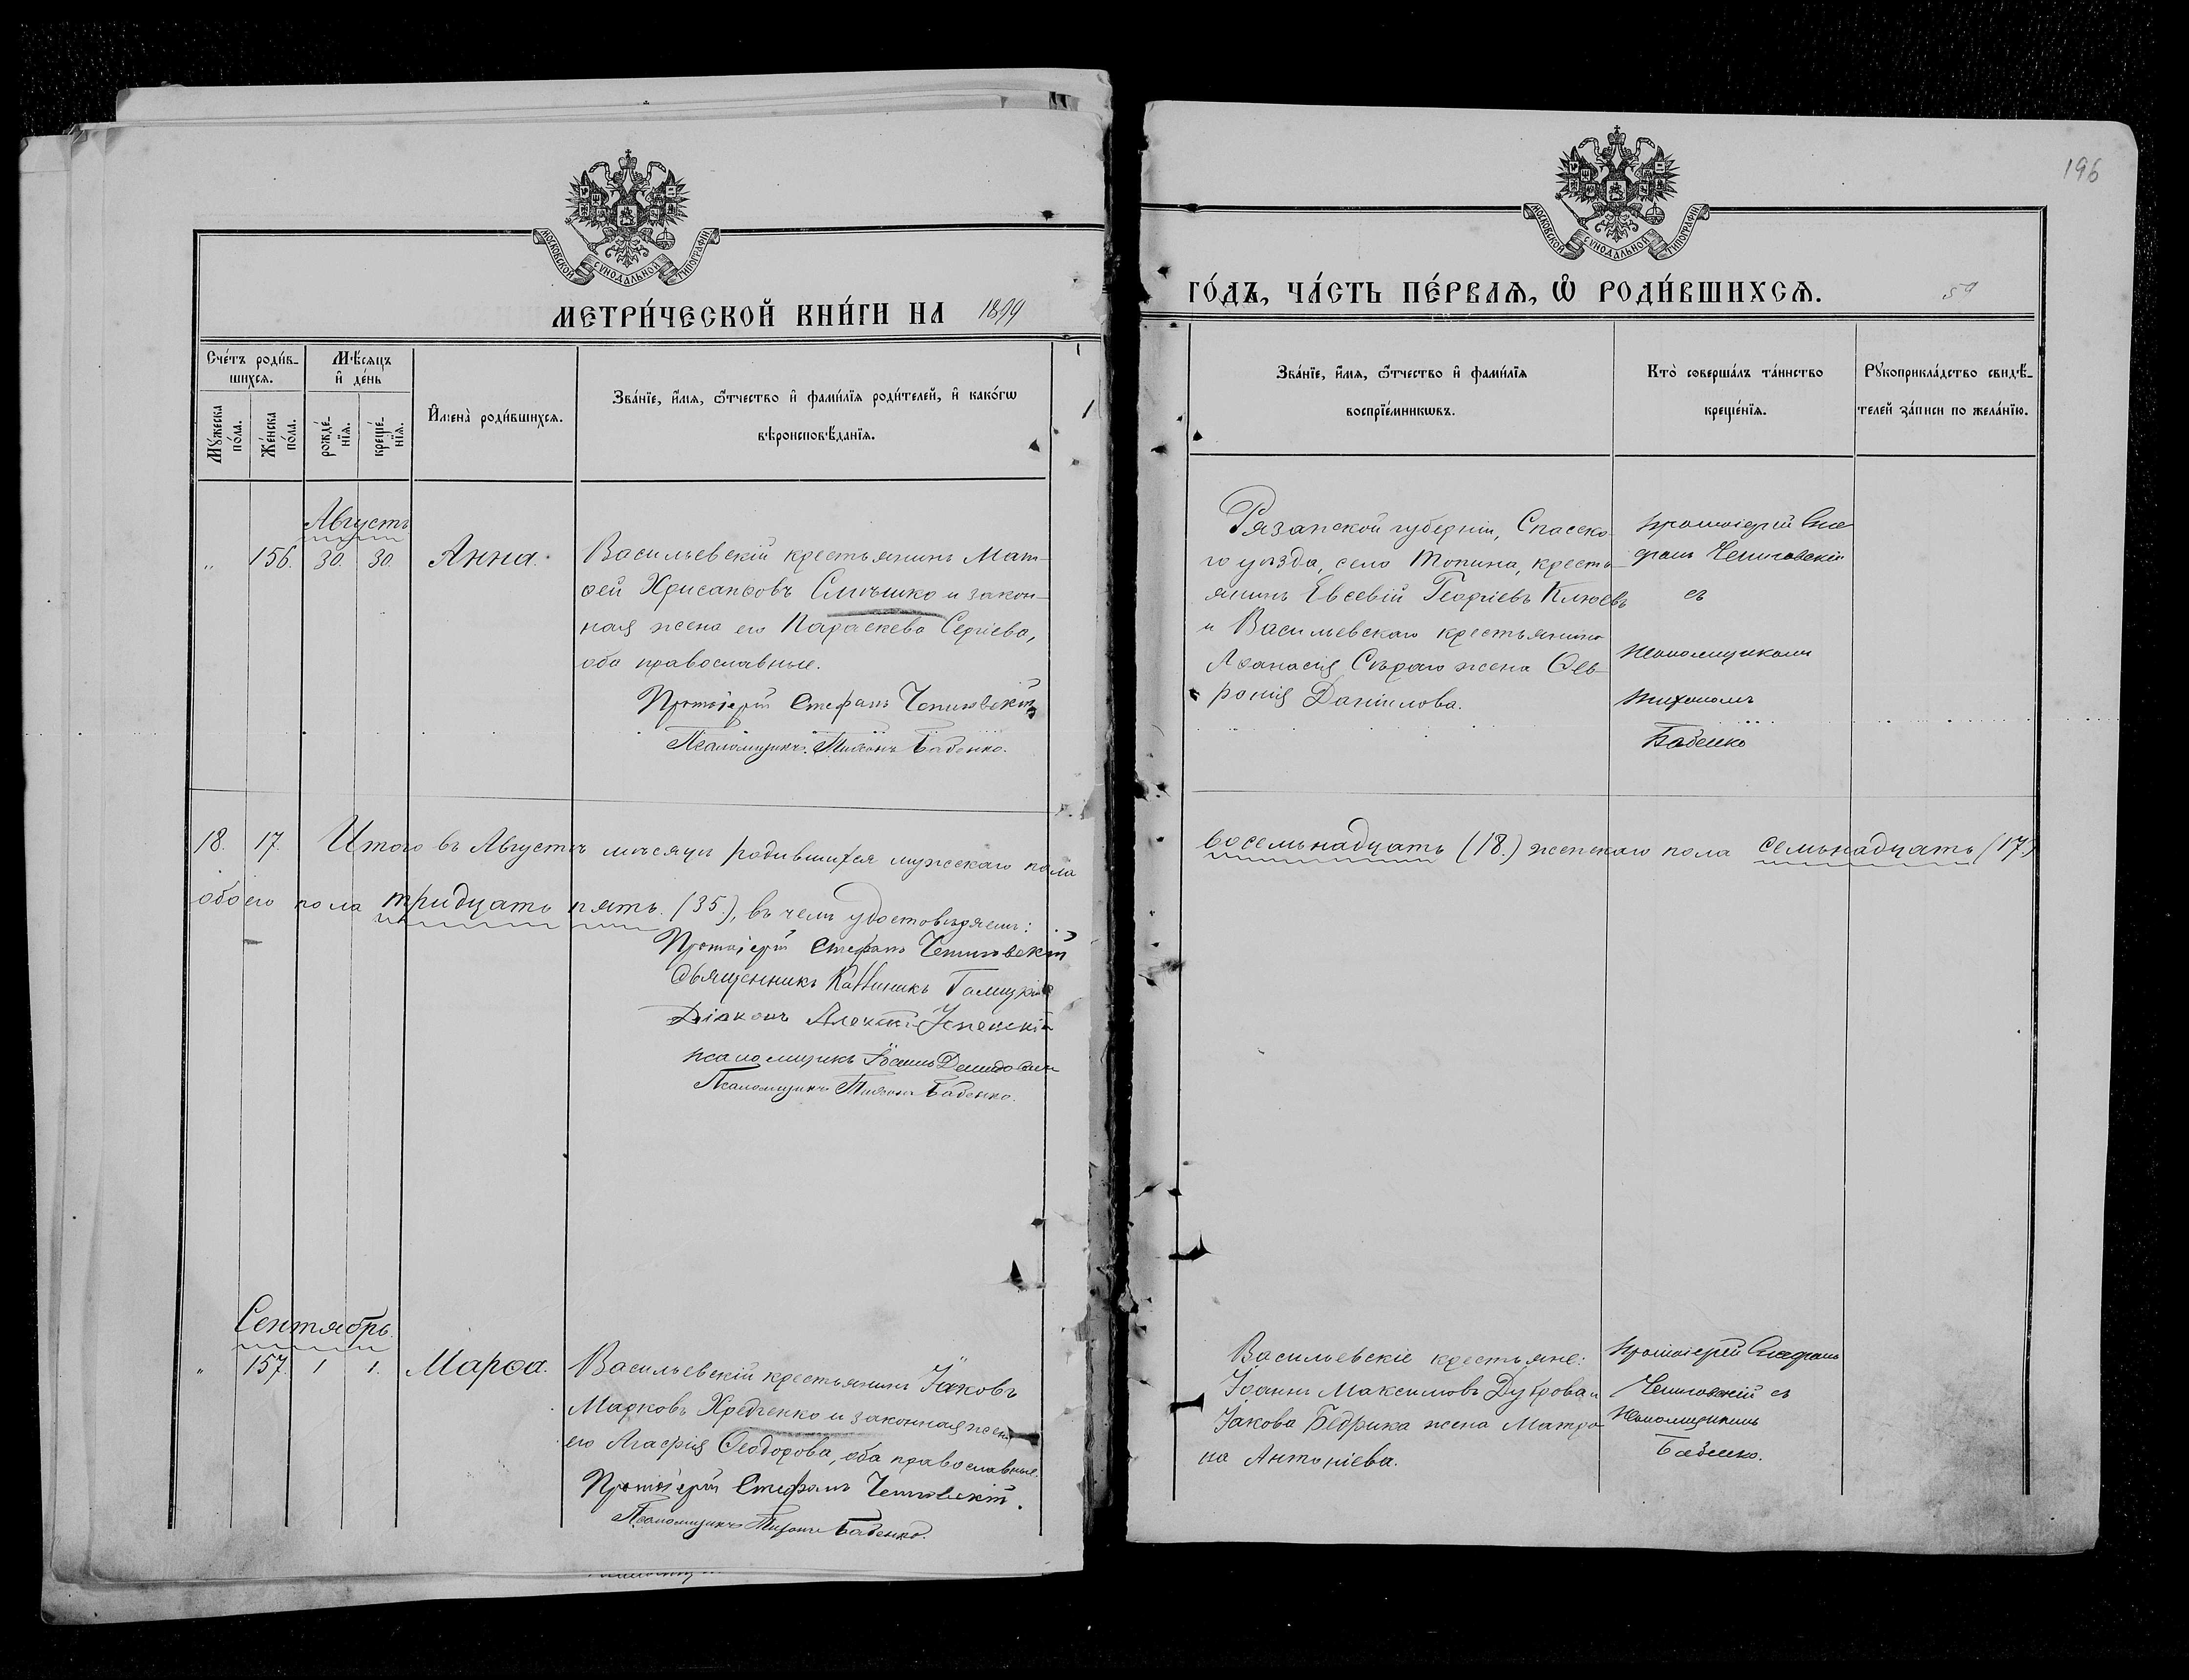 196
МОСКОВСКОЙ СѴНОДАЛЬНОЙ ТИПОГРАФІИ
МОСКОВСКОЙ СѴНОДАЛЬНОЙ ТИПОГРАФІИ
МЕТРИ́ЧЕСКОЙ КНИ́ГИ НА 1899
ГО́ДЪ, ЧА́СТЬ ПЕ́РВАѦ, Ѽ РОДИ́ВШИХСѦ.
Сче́тъ роди́в-
шихсѧ.
Мꙋ́жеска
по́ла.
Же́нска
по́ла.
Мѣ́сѧцъ
и҆ де́нь
рожде́-
нїѧ.
креще́-
нїѧ.
И҆мена̀ роди́вшихсѧ.
Зва́нїе, и҆́мѧ, ѻ҆́тчество и҆ фами́лїѧ роди́телей, и҆ како́гѡ
вѣроисповѣ́данїѧ.
Зва́нїе, и҆́мѧ, ѻ҆́тчество и҆ фами́лїѧ
воспрїе́мникѡвъ.
Кто̀ соверша́лъ та́инство
креще́нїѧ.
Рꙋкоприкла́дство свидѣ́-
телей за́писи по жела́нїю.
Августъ
„ 156. 30. 30. Анна.
Васильевскій крестьянинъ Мат-
ѳей Хрисанѳовъ и закон-
ная жена его Параскева Сергіева,
оба православные.
Протоіерей Стефанъ
Псаломщикъ Тихонъ Бабенко.
Рязанской губерніи, Спасска-
го уѣзда, село Топина, кресть-
янинъ Евсевій Георгіевъ Клюевъ
и Васильевскаго крестьянина
Аѳанасія Сѣраго жена Фев-
ронія Даніилова.
Протоіерей Сте-
фанъ
съ
псаломщикомъ
Тихономъ
Бабенко
18. 17. Итого въ Августѣ мѣсяцѣ родившихся мужескаго пола
восемьнадцать (18.) женскаго пола семьнадцать (17.)
обоего пола тридцать пять. (35.), въ чемъ удостовѣряемъ:
Протоіерей Стефанъ
Священникъ
Діаконъ Алексій Успенскій
псаломщикъ
Псаломщикъ Тихонъ Бабенко.
Сентябрь.
„ 157. 1 1. Марѳа.
Васильевскій крестьянинъ Іаковъ
Марковъ и законная жена
его Агафія Ѳеодорова, оба православные.
Протоіерей Стефанъ
Псаломщикъ Тихонъ Бабенко.
Васильевскіе крестьяне:
Іоаннъ Максимовъ Дуброва и
Іакова Бедрика жена Матро-
на Антоніева.
Протоіерей Стефанъ
съ
псаломщикомъ
Бабенко.